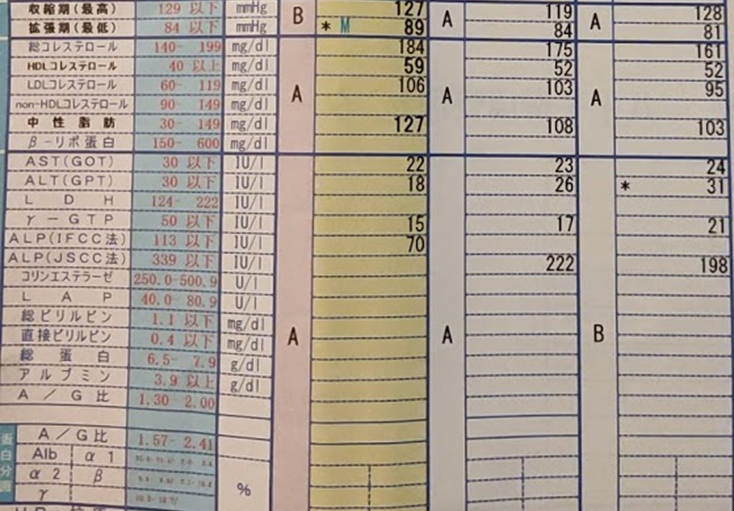 収縮期(最高) 129 以下 mmHg B 127 A 119 A 128
拡張期(最低) 84 以下 mmHg * M 89 84 81
総コレステロール 140- 199 mg/dl A 184 A 175 A 161
HDLコレステロール 40 以上 mg/dl 59 52 52
LDLコレステロール 60- 119 mg/dl 106 103 95
non-HDLコレステロール 90- 149 mg/dl
中性脂肪 30- 149 mg/dl 127 108 103
β-リポ蛋白 150- 600 mg/dl
AST(GOT) 30 以下 IU/l A 22 A 23 B 24
ALT(GPT) 30 以下 IU/l 18 26 * 31
LDH 124- 222 IU/l
γ-GTP 50 以下 IU/l 15 17 21
ALP(IFCC法) 113 以下 IU/l 70
ALP(JSCC法) 339 以下 IU/l 222 198
コリンエステラーゼ 250.0-500.9 U/l
LAP 40.0- 80.9 U/l
総ビリルビン 1.1 以下 mg/dl
直接ビリルビン 0.4 以下 mg/dl
総蛋白 6.5- 7.9 g/dl
アルブミン 3.9 以上 g/dl
A/G比 1.30- 2.00
蛋白分画 A/G比 1.57- 2.41 %
Alb α1
α2 β
γ